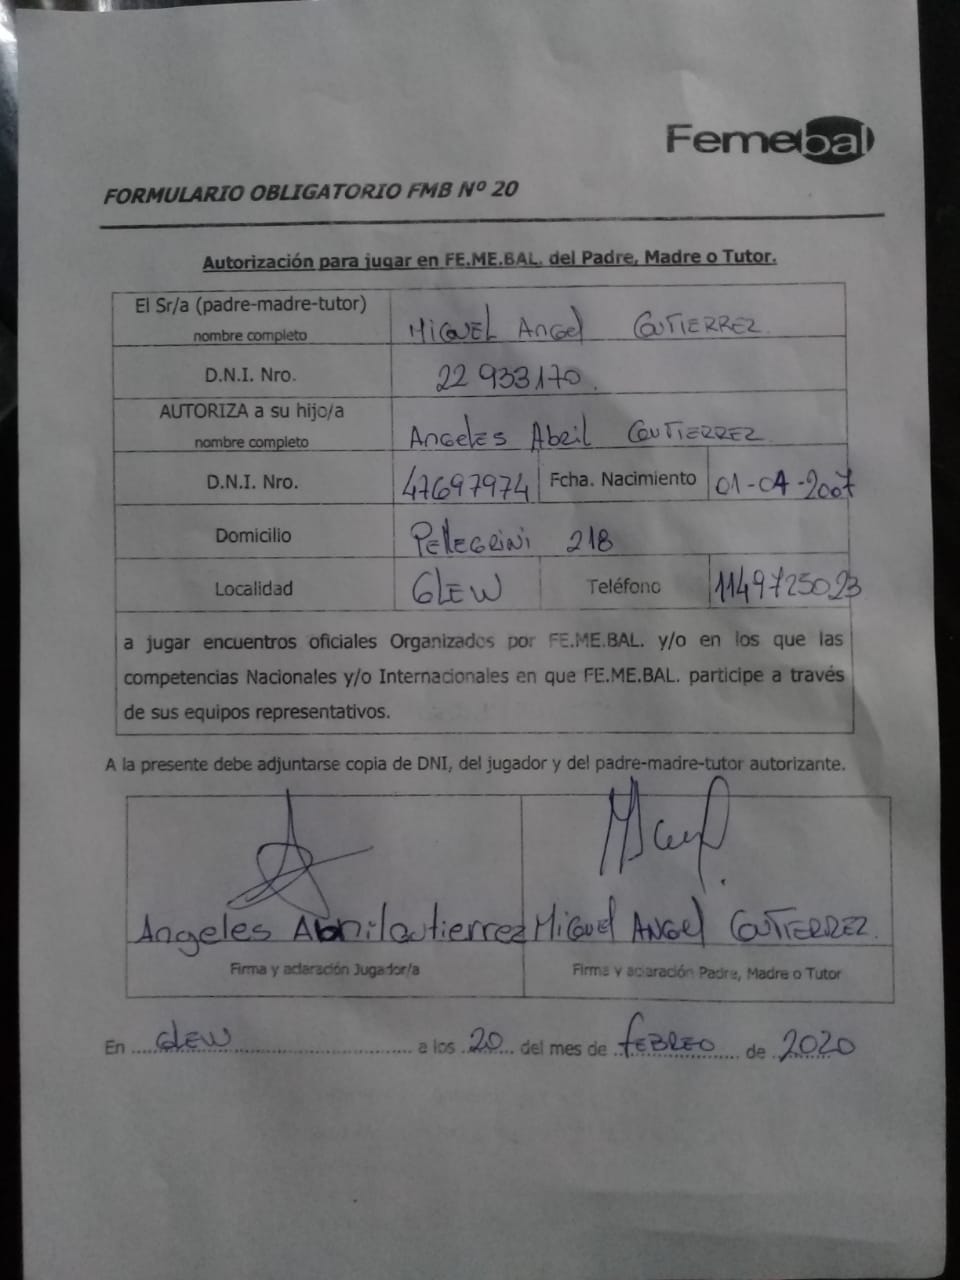 Femebal
FORMULARIO OBLIGATORIO FMB Nº 20
Autorización para jugar en FE.ME.BAL. del Padre, Madre o Tutor.
El Sr/a (padre-madre-tutor)
nombre completo
MIGUEL Angel GUTIERREZ.
D.N.I. Nro.
22 933170.
AUTORIZA a su hijo/a
nombre completo
Angeles Abril GUTIERREZ
D.N.I. Nro.
47697974
Fcha. Nacimiento
01-04-2007
Domicilio
Pellegrini 218
Localidad
GLEW
Teléfono
1149725023
a jugar encuentros oficiales Organizados por FE.ME.BAL. y/o en los que las
competencias Nacionales y/o Internacionales en que FE.ME.BAL. participe a través
de sus equipos representativos.
A la presente debe adjuntarse copia de DNI, del jugador y del padre-madre-tutor autorizante.
Angeles Abril Gutierrez
Miguel Angel GUTIERREZ.
Firma y aclaración Jugador/a
Firma y aclaración Padre, Madre o Tutor
En GLEW a los 20 del mes de FEBREO de 2020